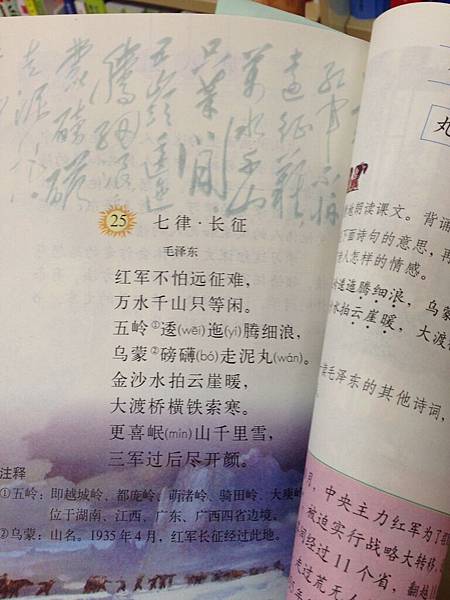 25 七律·长征
毛泽东
红军不怕远征难，
万水千山只等闲。
五岭①逶(wēi)迤(yí)腾细浪，
乌蒙②磅礴(bó)走泥丸(wán)。
金沙水拍云崖暖，
大渡桥横铁索寒。
更喜岷(mín)山千里雪，
三军过后尽开颜。
注释
①五岭：即越城岭、都庞岭、萌渚岭、骑田岭、大庾岭
位于湖南、江西、广东、广西四省边境。
②乌蒙：山名。1935年4月，红军长征经过此地。
丸
地朗读课文。背诵
下面诗句的意思，再
诗人怎样的情感。
逶迤腾细浪，乌蒙
水拍云崖暖，大渡
读毛泽东的其他诗词，
月，中央主力红军为了
被迫实行战略大转移
间经过11个省，翻越
走过荒无人